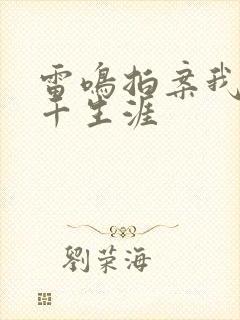 雷鳴拍案我
十生涯
劉荣海